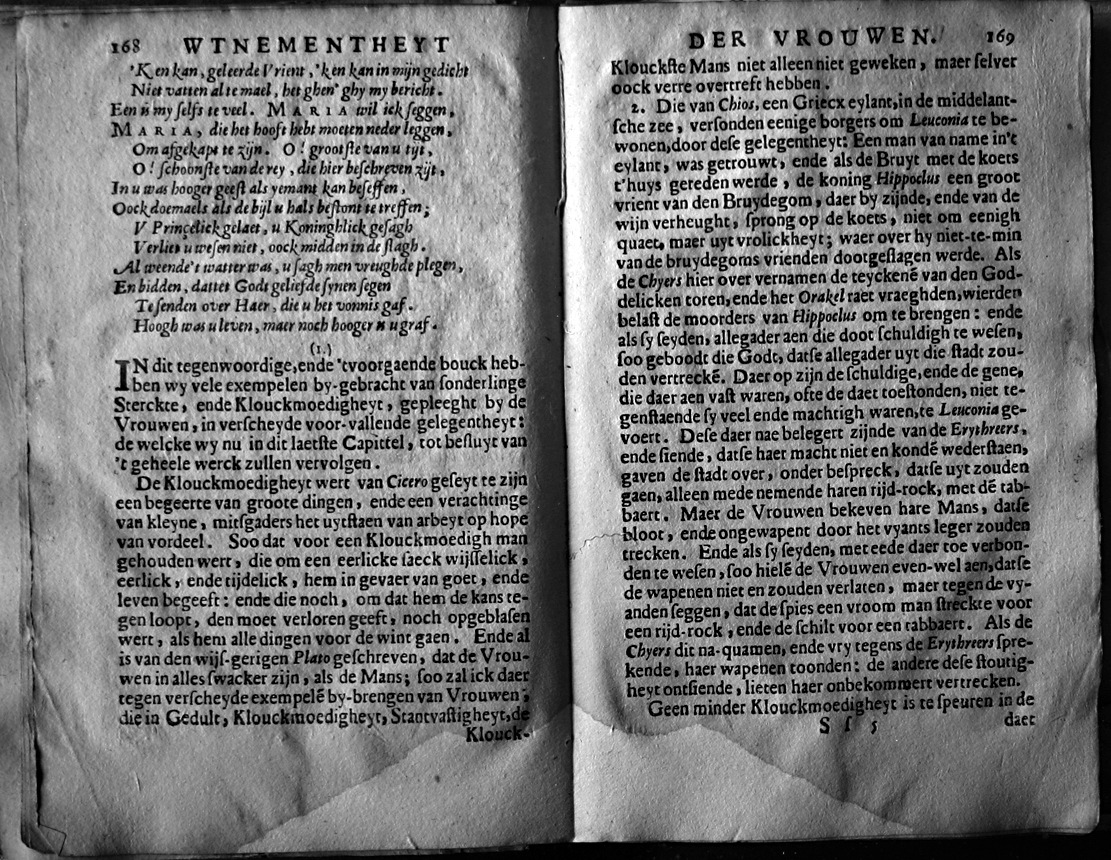 168 WTNEMENTHEYT
'K en kan, geleerde Vrient, 'ken kan in mijn gedicht
Niet vatten al te mael, het ghen' ghy my bericht.
Een is my selfs te veel. MARIA wil ick seggen,
MARIA, die het hooft hebt moeten neder leggen,
Om afgekapt te zijn. O! grootste van u tijt,
O! schoonste van de rey, die hier beschreven zijt,
In u was hooger geest als yemant kan beseffen,
Oock doemaels als de bijl u hals bestont te treffen;
V Princelick gelaet, u Koninghlick gesagh
Verliet u wesen niet, oock midden in de slagh.
Al weende't watter was, u sagh men vreughde plegen,
En bidden, dattet Godt geliefde synen segen
Te senden over Haer, die u het vonnis gaf.
Hoogh was u leven, maer noch hooger is u graf.
(1.)
IN dit tegenwoordige, ende 'tvoorgaende bouck heb-
ben wy vele exempelen by-gebracht van sonderlinge
Sterckte, ende Klouckmoedigheyt, gepleeght by de
Vrouwen, in verscheyde voor-vallende gelegentheyt:
de welcke wy nu in dit laetste Capittel, tot besluyt van
't geheele werck zullen vervolgen.
De Klouckmoedigheyt wert van Cicero geseyt te zijn
een begeerte van groote dingen, ende een verachtinge
van kleyne, mitsgaders het uytstaen van arbeyt op hope
van vordeel. Soo dat voor een Klouckmoedigh man
gehouden wert, die om een eerlicke saeck wijsselick,
eerlick, ende tijdelick, hem in gevaer van goet, ende
leven begeeft: ende die noch, om dat hem de kans te-
gen loopt, den moet verloren geeft, noch opgeblasen
wert, als hem alle dingen voor de wint gaen. Ende al
is van den wijs-gerigen Plato geschreven, dat de Vrou-
wen in alles swacker zijn, als de Mans; soo zal ick daer
tegen verscheyde exempelē by-brengen van Vrouwen,
die in Gedult, Klouckmoedigheyt, Stantvastigheyt, de
Klouck-
DER VROUWEN. 169
Klouckste Mans niet alleen niet geweken, maer selver
oock verre overtreft hebben.
2. Die van Chios, een Griecx eylant, in de middelant-
sche zee, versonden eenige borgers om Leuconia te be-
wonen, door dese gelegentheyt: Een man van name in't
eylant, was getrouwt, ende als de Bruyt met de koets
t'huys gereden werde, de koning Hippoclus een groot
vrient van den Bruydegom, daer by zijnde, ende van de
wijn verheught, sprong op de koets, niet om eenigh
quaet, maer uyt vrolickheyt; waer over hy niet-te-min
van de bruydegoms vrienden dootgeslagen werde. Als
de Chyers hier over vernamen de teyckenē van den God-
delicken toren, ende het Orakel raet vraeghden, wierden
belast de moorders van Hippoclus om te brengen: ende
als sy seyden, allegader aen die doot schuldigh te wesen,
soo geboodt die Godt, datse allegader uyt die stadt zou-
den vertreckē. Daer op zijn de schuldige, ende de gene,
die daer aen vast waren, ofte de daet toestonden, niet te-
genstaende sy veel ende machtigh waren, te Leuconia ge-
voert. Dese daer nae belegert zijnde van de Erythreers,
ende siende, datse haer macht niet en kondē wederstaen,
gaven de stadt over, onder bespreck, datse uyt zouden
gaen, alleen mede nemende haren rijd-rock, met dē tab-
baert. Maer de Vrouwen bekeven hare Mans, datse
bloot, ende ongewapent door het vyants leger zouden
trecken. Ende als sy seyden, met eede daer toe verbon-
den te wesen, soo hielē de Vrouwen even-wel aen, datse
de wapenen niet en zouden verlaten, maer tegen de vy-
anden seggen, dat de spies een vroom man streckte voor
een rijd-rock, ende de schilt voor een tabbaert. Als de
Chyers dit na-quamen, ende vry tegens de Erythreers spre-
kende, haer wapenen toonden: de andere dese stoutig-
heyt ontsiende, lieten haer onbekommert vertrecken.
Geen minder Klouckmoedigheyt is te speuren in de
S s 5 daet